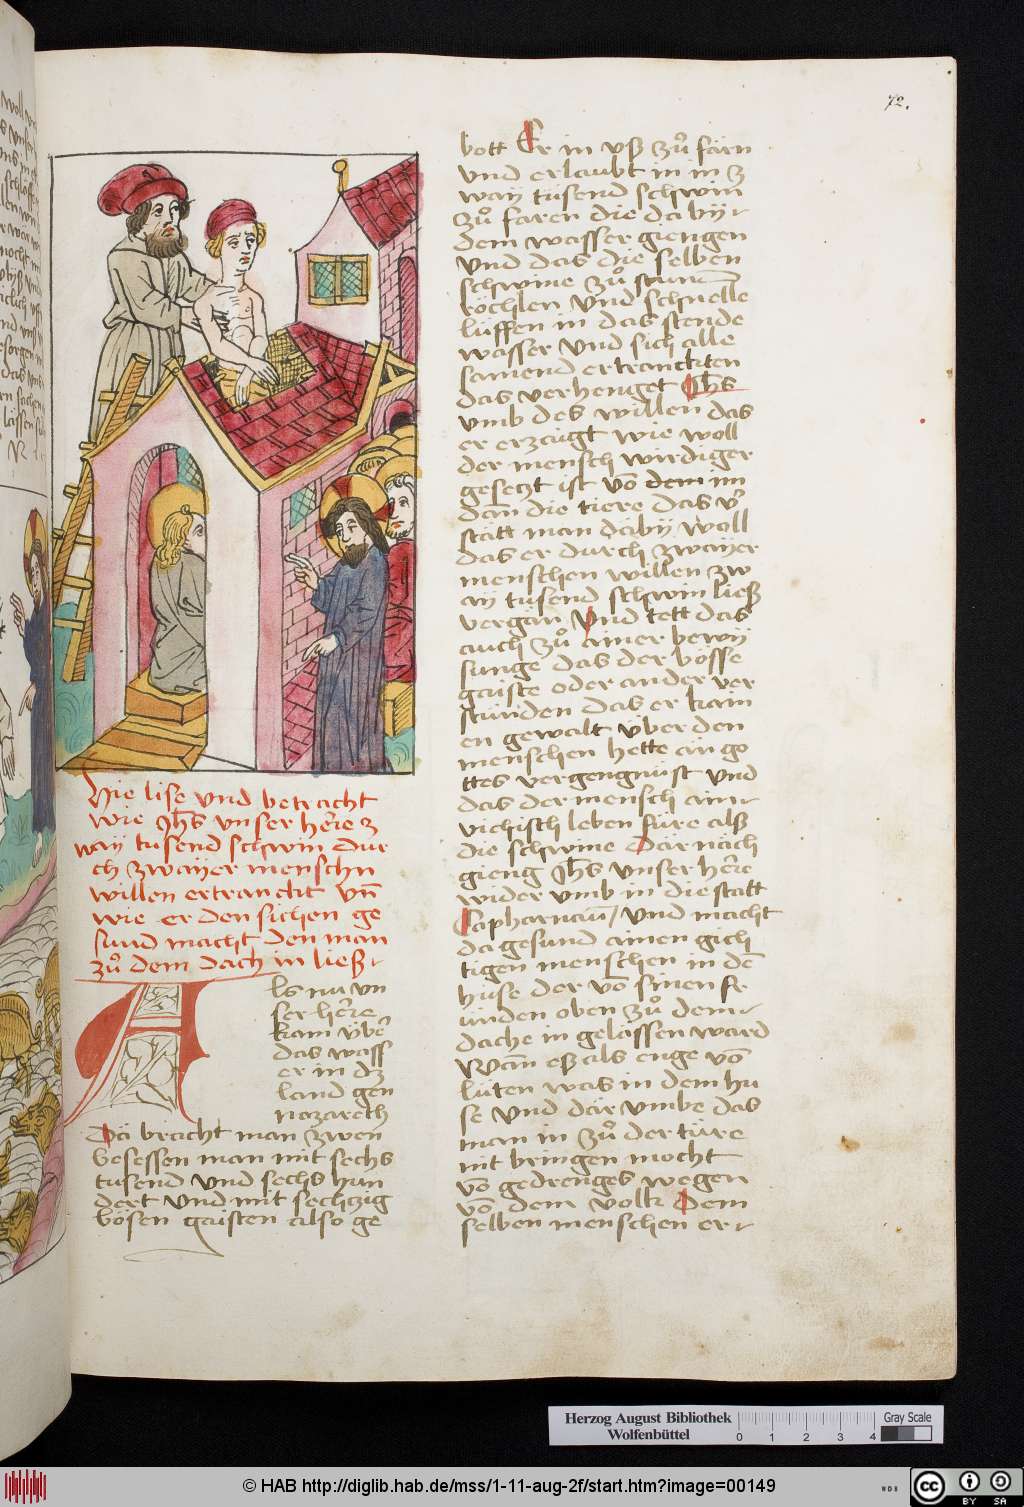 72.
Hie lise vnd betracht
wie Jhs vnser herre z
way tusend schwin dur
ch zwayer menschn
willen ertranckt vn̄
wie er den sichen ge
sund macht den man
zů dem dach in ließ
Als nu vn
ser herre
kam vber
das wass
er in dz
land gen
nazareth
Da bracht man zwen
besessen man mit sechs
tusend vnd sechs hun
dert vnd mit sechzig
bösen gaisten also ge
bott Er in vß zů farn
vnd erlaubt in in z
way tusend schwin
zů faren die da byͤ
dem wasser giengen
vnd das die selben
schwine zů
vnd schnelle
lüffen in das stende
wasser vnd sich alle
samend ertranckten
das verhenget Jhs
vmb des willen das
er erzaigt wie woll
der mensch wirdiger
gesetzt ist vō dem im
dañ die tiere das v̓
statt man da by woll
das er durch zwayer
menschen willen zw
ay tusend schwin ließ
vergan Vnd tett das
auch zů ainer bewy
sunge das der bösse
gaiste oder ander ver
stunden das er kain
en gewalt über den
menschen hette ān go
ttes vergengnüst vnd
das der mensch ain
vichisch leben füre alß
die schwine Dar nach
gieng Jhs vnser herre
wider vmb in die statt
Capharnaū / vnd macht
da gesund ainen gich
tigen menschen in dē
huse der vō sinen fr
ünden oben zů dem
dache in gelassen ward
Wañ eß als enge vō
lüten was in dem hu
se vnd dar vmbe das
man in zů der türe
nit bringen mocht
vō gedrenges wegen
vō dem volk Dem
selben menschen er
Herzog August Bibliothek
Wolfenbüttel
0 1 2 3 4
Gray Scale
© HAB http://diglib.hab.de/mss/1-11-aug-2f/start.htm?image=00149
cc BY SA